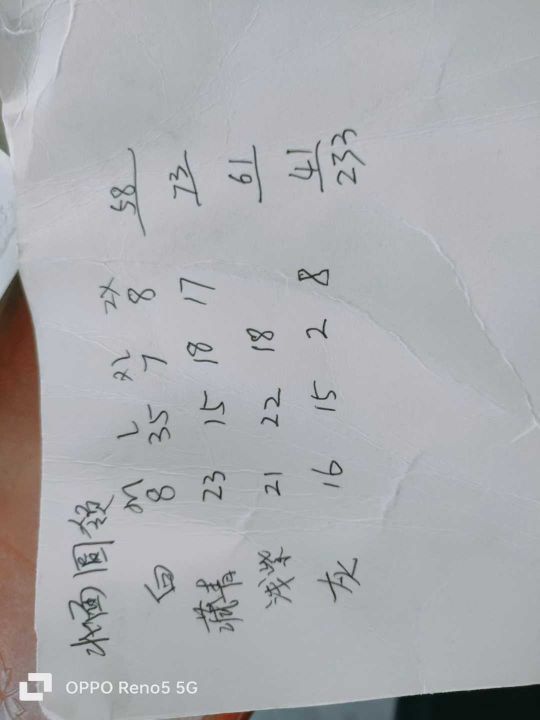 水洒圆领
M L XL 2X
白 8 35 7 8 58
藏青 23 15 18 17 73
浅紫 21 22 18 61
灰 16 15 2 8 41
233
OPPO Reno5 5G